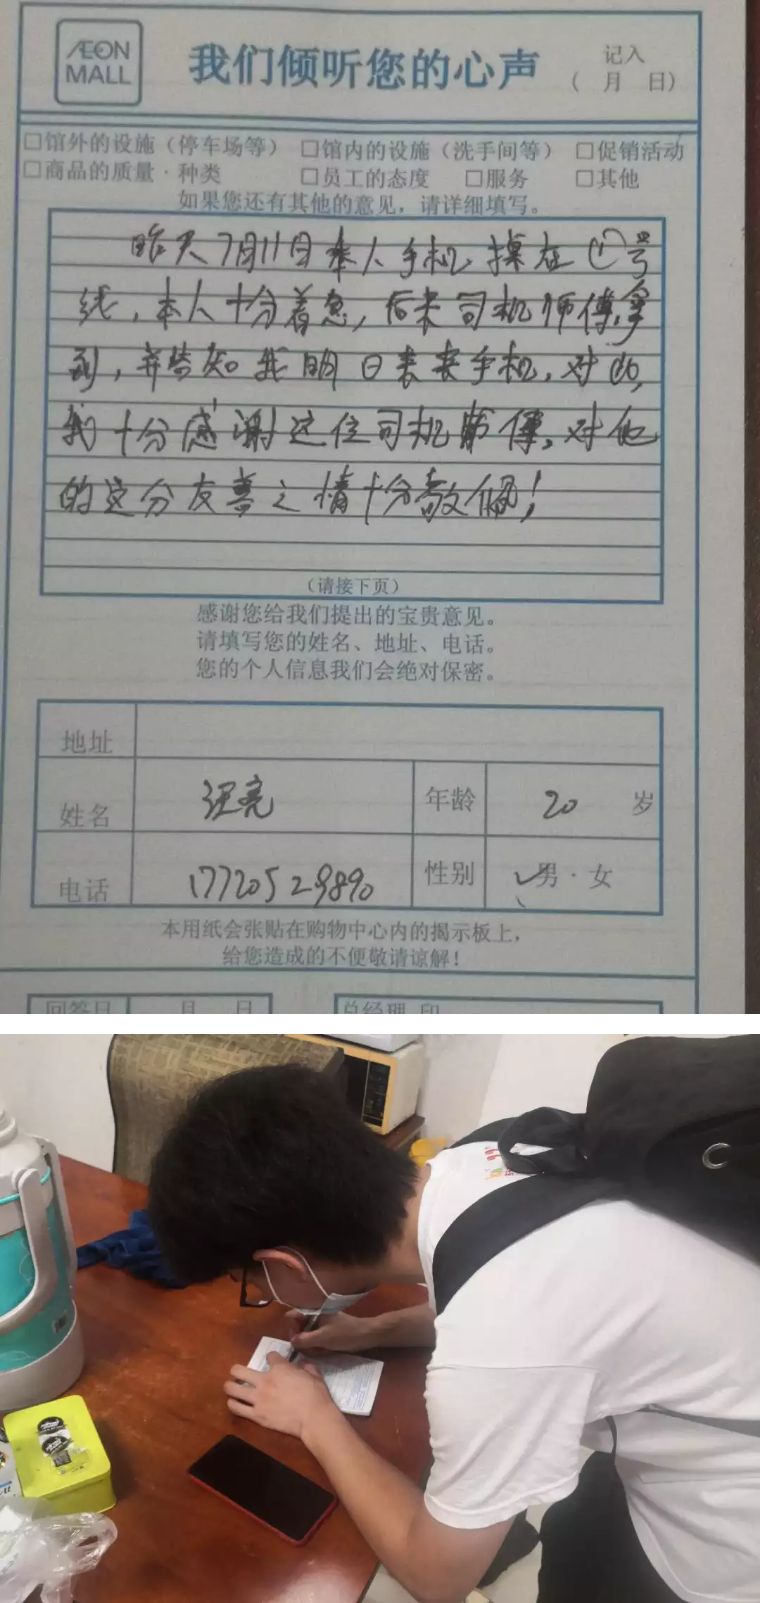 ÆON
MALL
我们倾听您的心声
记入
( 月 日)
□馆外的设施（停车场等） □馆内的设施（洗手间等） □促销活动
□商品的质量·种类 □员工的态度 □服务 □其他
如果您还有其他的意见，请详细填写。
昨天7月11日本人手机 在①号
线，本人十分着急，后来司机师傅拿
到，并告知我明日来 手机，对此，
我十分感谢这位司机师傅，对他
的这分友善之情十分敬佩！
（请接下页）
感谢您给我们提出的宝贵意见。
请填写您的姓名、地址、电话。
您的个人信息我们会绝对保密。
地址
姓名 亮 年龄 20 岁
电话 17720529890 性别 ✓男·女
本用纸会张贴在购物中心内的揭示板上，
给您造成的不便敬请谅解！
回答日 月 日 总经理 印